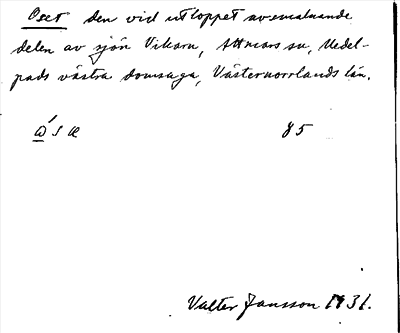 Oset den vid utloppet avsmalnande
delen av sjön Vikarn, Attmars sn, Medel-
pads västra domsaga, Västernorrlands län.
85
Valter Jansson 1931.